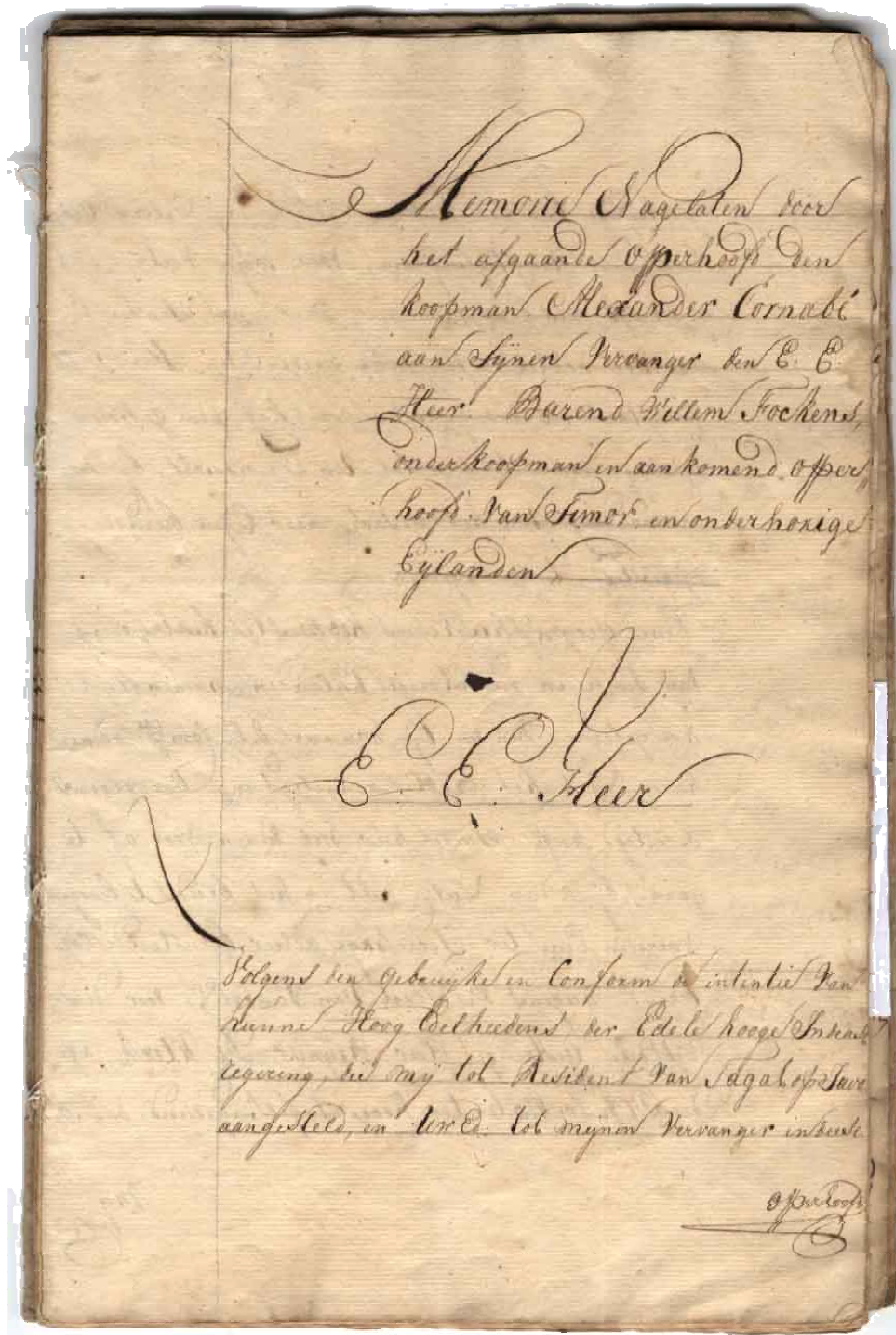 Memorie Nagelaten door
het afgaande opperhoofd den
koopman Alexander Cornabé
aan Sijnen Vervanger den E. E.
Heer. Barend Willem Fockens,
onderkoopman en aankomend opper„
hoofd van Timor en onderhorige
Eijlanden
E. E. Heer
Volgens den gebruijke en Conform de intentie van
hunne Hoog Edelheedens, der Edele hooge Indeasche
regering, die mij tot Resident van Tagal op Java
aangesteld, en UwEd. tot mijnen Vervanger in deese
opperhoofd